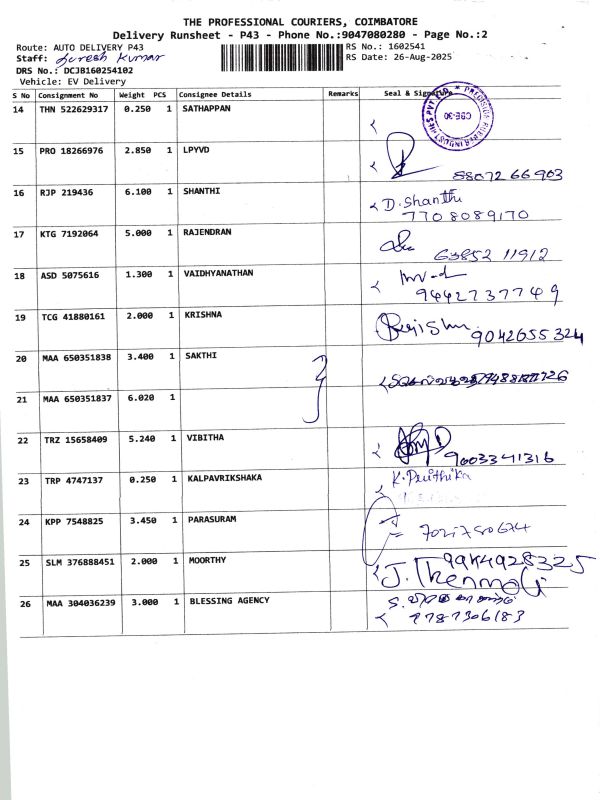 THE PROFESSIONAL COURIERS, COIMBATORE
Delivery Runsheet - P43 - Phone No.:9047080280 - Page No.:2
Route: AUTO DELIVERY P43
RS No.: 1602541
Staff: Suresh Kumar
RS Date: 26-Aug-2025
DRS No.: DCJB160254102
Vehicle: EV Delivery
S No Consignment No Weight PCS Consignee Details Remarks Seal & Signature
14 THN 522629317 0.250 1 SATHAPPAN
CBE-30
15 PRO 18266976 2.850 1 LPYVD
88072 66903
16 RJP 219436 6.100 1 SHANTHI D. Shanthi
7708089170
17 KTG 7192064 5.000 1 RAJENDRAN
63852 11912
18 ASD 5075616 1.300 1 VAIDHYANATHAN
9442737749
19 TCG 41880161 2.000 1 KRISHNA
9042655324
20 MAA 650351838 3.400 1 SAKTHI
21 MAA 650351837 6.020 1
22 TRZ 15658409 5.240 1 VIBITHA
9003341316
23 TRP 4747137 0.250 1 KALPAVRIKSHAKA
24 KPP 7548825 3.450 1 PARASURAM
25 SLM 376888451 2.000 1 MOORTHY
J. Thenmoli
26 MAA 304036239 3.000 1 BLESSING AGENCY
9787306183